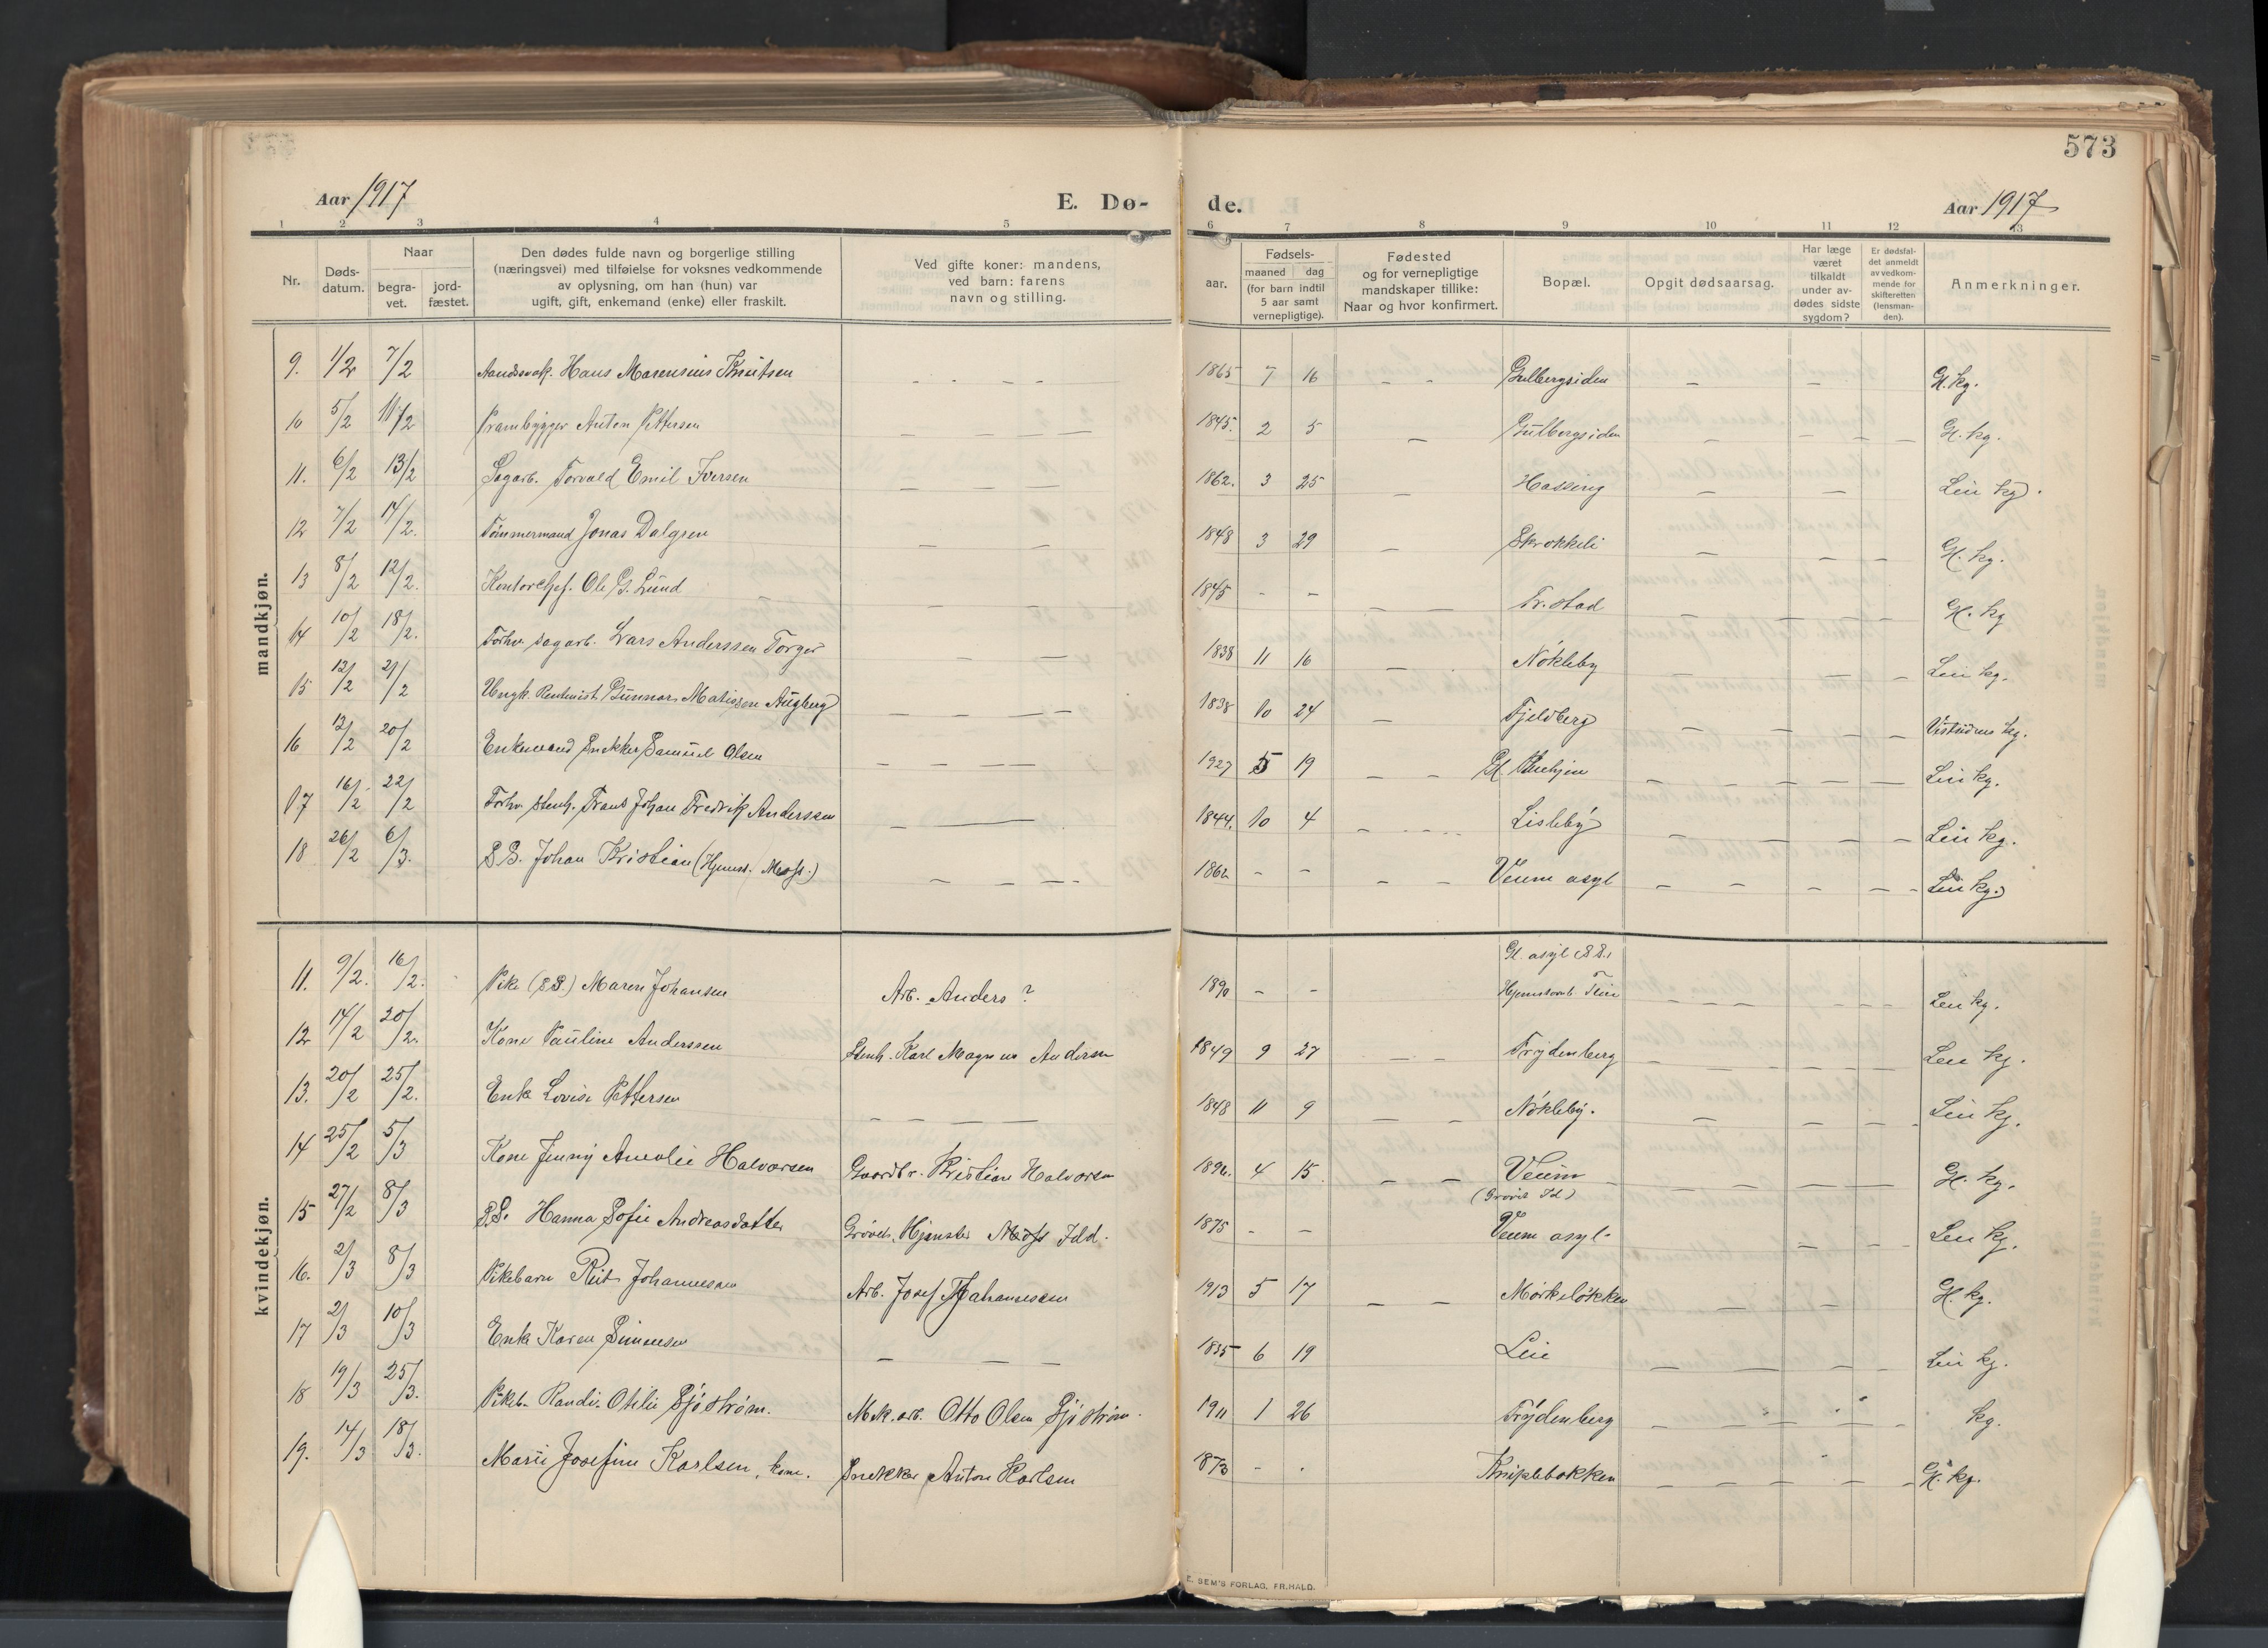 573
Aar 1917 E. Dø- de. Aar 1917
1 2 3 4 5 6 7 8 9 10 11 12 13
Nr.
Døds-
datum.
Naar
begra-
vet.
jord-
fæstet.
Den dødes fulde navn og borgerlige stilling
(næringsvei) med tilføielse for voksnes vedkommende
av oplysning, om han (hun) var
ugift, gift, enkemand (enke) eller fraskilt.
Ved gifte koner: mandens,
ved barn: farens
navn og stilling.
Fødsels-
aar.
maaned dag
(for barn indtil
5 aar samt
vernepligtige).
Fødested
og for vernepligtige
mandskaper tillike:
Naar og hvor konfirmert.
Bopæl.
Opgit dødsaarsag.
Har læge
været
tilkaldt
under av-
dødes sidste
sygdom?
Er dødsfal-
det anmeldt
av vedkom-
mende for
skifteretten
(lensman-
den).
Anmerkninger.
mandkjøn.
9. 1/2 7/2 Hans Marensius Knutsen - - - - 1865 7 16 - - Gulbergsiden - - Gl. kg.
10 5/2 11/2 Prambygger Anton Pettersen - - - - 1845. 2 5 - Gulbergsiden - - - - Gl. kg.
11. 6/2 13/2 Sagarb. Torvald Emil Iversen - - - 1862. 3 25 - Hassing - - Leie kg.
12 7/2 14/2. Tømmermand Jonas Dalgren - - 1848 3 29 - Skrokkeli - - - Gl. kg.
13 8/2 12/2. Kontorchef. Ole G. Lund - - - 1845 - - - - Fr.stad - - - Gl. kg
14 10/2 18/2. Forhv. sagarb. Lars Anderssen Torger - - 1838 11 16 - Nøkleby - - - - Leie kg.
15 12/2 21/2 Ungk. Rentenist Gunnar Matissen Augberg - - - - 1838 10 24 - Fjeldberg - - - - Vestsidens kg.
16 12/2 20/2 Enkemand Snekker Samuel Olsen - - - - 1927 5 19 - - Gl. - - - - Leie kg.
17 16/2 22/2 Forhv. stenh. Frans Johan Fredrik Anderssen - - 1844. 10 4 - - - - Lisleby - - - - Leie kg.
18 26/2 6/3. S.S. Johan Kristian (Hjemst. Moss.) - - - - 1862 - - - - Veum asyl - - - - - Leie kg.
kvindekjøn.
11. 9/2. 16/2. Pike (S.S.) Maren Johansen Arb. Anders ? 1890 - - Gl. asyl (S.S.,
Hjemstavnsb. - - - - Leie kg.
12 14/2 20/2. Kone Pauline Anderssen Stenh. Karl Magnus Andersen 1849 9 27 - - Frydenberg - - - - - Leie kg.
13. 20/2 25/2. Enke Lovise Pettersen - - - - 1848 11 9 - - Nøkleby. - - - - Leie kg.
14 25/2 5/3 Kone Jenny Amalie Halvorsen Gaardbr. Kristian Halvorsen 1896. 4 15 - - Veum - - - - - Gl. kg.
15 27/2 8/3 S.S. Hanna Sofie Andreasdatter Grøvel, Hjemster Moss Idd. 1875 - - (Grøvle Id)
Veum asyl. - - - Leie kg.
16. 2/3 8/3 Pikebarn Rut Johannessen Arb. Josef Johannessen 1913 5 17 - - Mørkeløkken - - - - Gl. kg.
17 2/3 10/3 Enke Karen Simensen - - - 1835 6 19 Leie - - - - Leie kg.
18 19/3 25/3. Pikeb. Randi Otilie Sjøstrøm. Mek. arb. Otto Olsen Sjøstrøm. 1911 1 26 Frydenberg - - - - - kg.
19. 14/3 18/3. Marie Josefine Karlsen, kone. Snekker Anton Karlsen 1873 - - Kniplebakken - - - - - Gl. kg.
E. SEM'S FORLAG, FR.HALD.